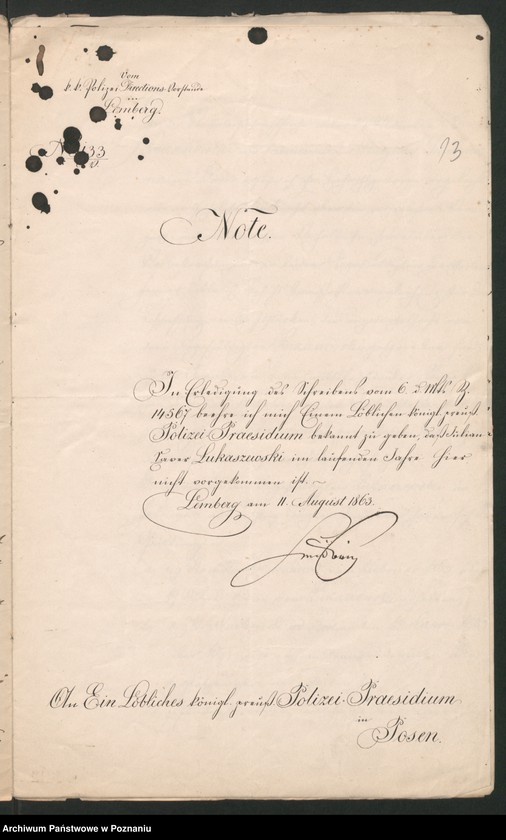 Vom
k. k. Polizei-Directions-Vorstande
Lemberg.
133
13
Note.
In Erledigung des Schreibens vom 6. d Mts Z.
14567 beehre ich mich Einem Löblichen königl. preuß
Polizei-Praesidium bekannt zu geben, daß Julian
Xaver Lukaszewski im laufenden Jahre hier
nicht vorgekommen ist. ~
Lemberg am 11. August 1863.
An Ein Löbliches königl. preuß. Polizei-Praesidium
in
Posen.
Archiwum Państwowe w Poznaniu